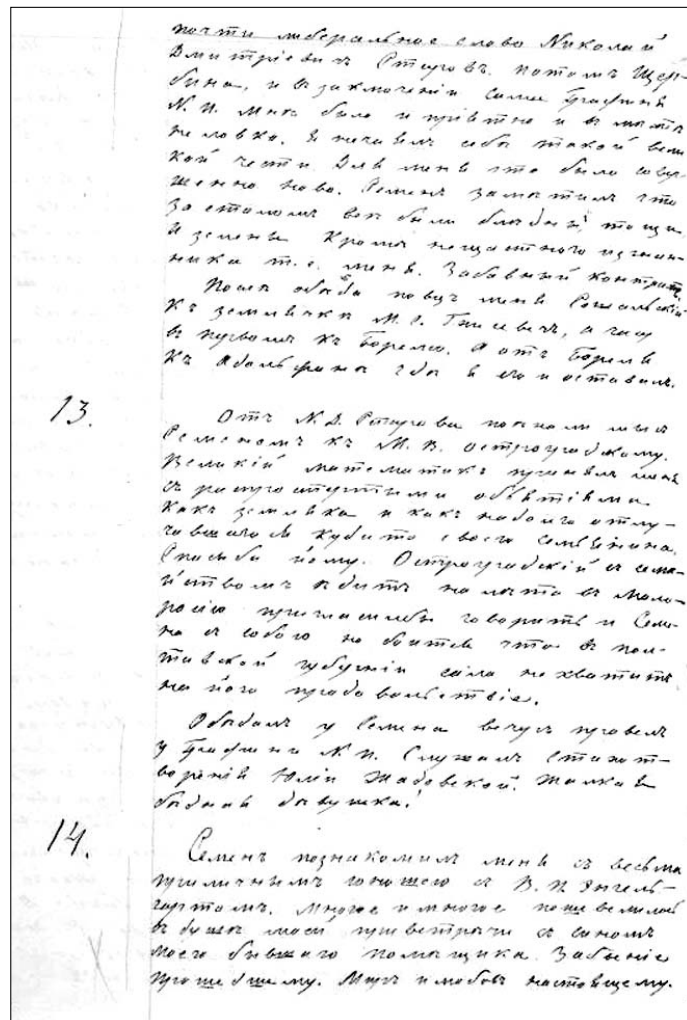 почти либеральное слово Николай
Дмитріевичъ Старовъ. потомъ Щер-
бина, и въ заключеніи сама Графиня
N. И. Мнѣ было и пріятно и въ мѣстѣ
неловко. Я нечаялъ себѣ такой вели-
кой чести. Для меня это было совер-
шенно ново. Семенъ замѣтилъ что
за столомъ всѣ были блѣдны, тощи,
и зелены Кромѣ нещастного изгнан-
ника т.е. меня. Забавный контрастъ.
Послѣ обѣда повезъ меня Сошальскій
Къ землячкѣ М. С. Гресевичъ, а часу
въ первомъ къ Борелю. А отъ Бореля
Къ Адольфинѣ гдѣ я его и оставилъ.
13.
Отъ N. Д. Старова поехали мы съ
Семеномъ къ М. В. остроградскому.
Великій математикъ принялъ меня
съ распростертыми обьятіями
Какъ земляка и какъ надолго отлу-
чавшагося куда то своего семьянина.
Спасыбо йому. Остроградскій съ семе-
йствомъ ѣдитъ на лѣто въ Мало-
россію пригласилбы говоритъ и Семе-
на съ собою но боится что въ пол-
тавской губерніи сала нехватитъ
на його продовольствіе.
Обѣдалъ у Семена вечеръ провелъ
у Графини N. И. Слушалъ стихот-
воренія Юліи Жадовской. Жалкая
бѣдная дѣвушка!
14.
Семенъ познакомилъ меня съ весьма
приличнымъ юношею съ В. П. Энгель-
гартомъ. Многое и многое пошевелилось
въ душѣ моей при встречи съ сыномъ
моего бывшаго помѣщика. Забвеніе
прошедшему. Миръ и любовь настоящему.